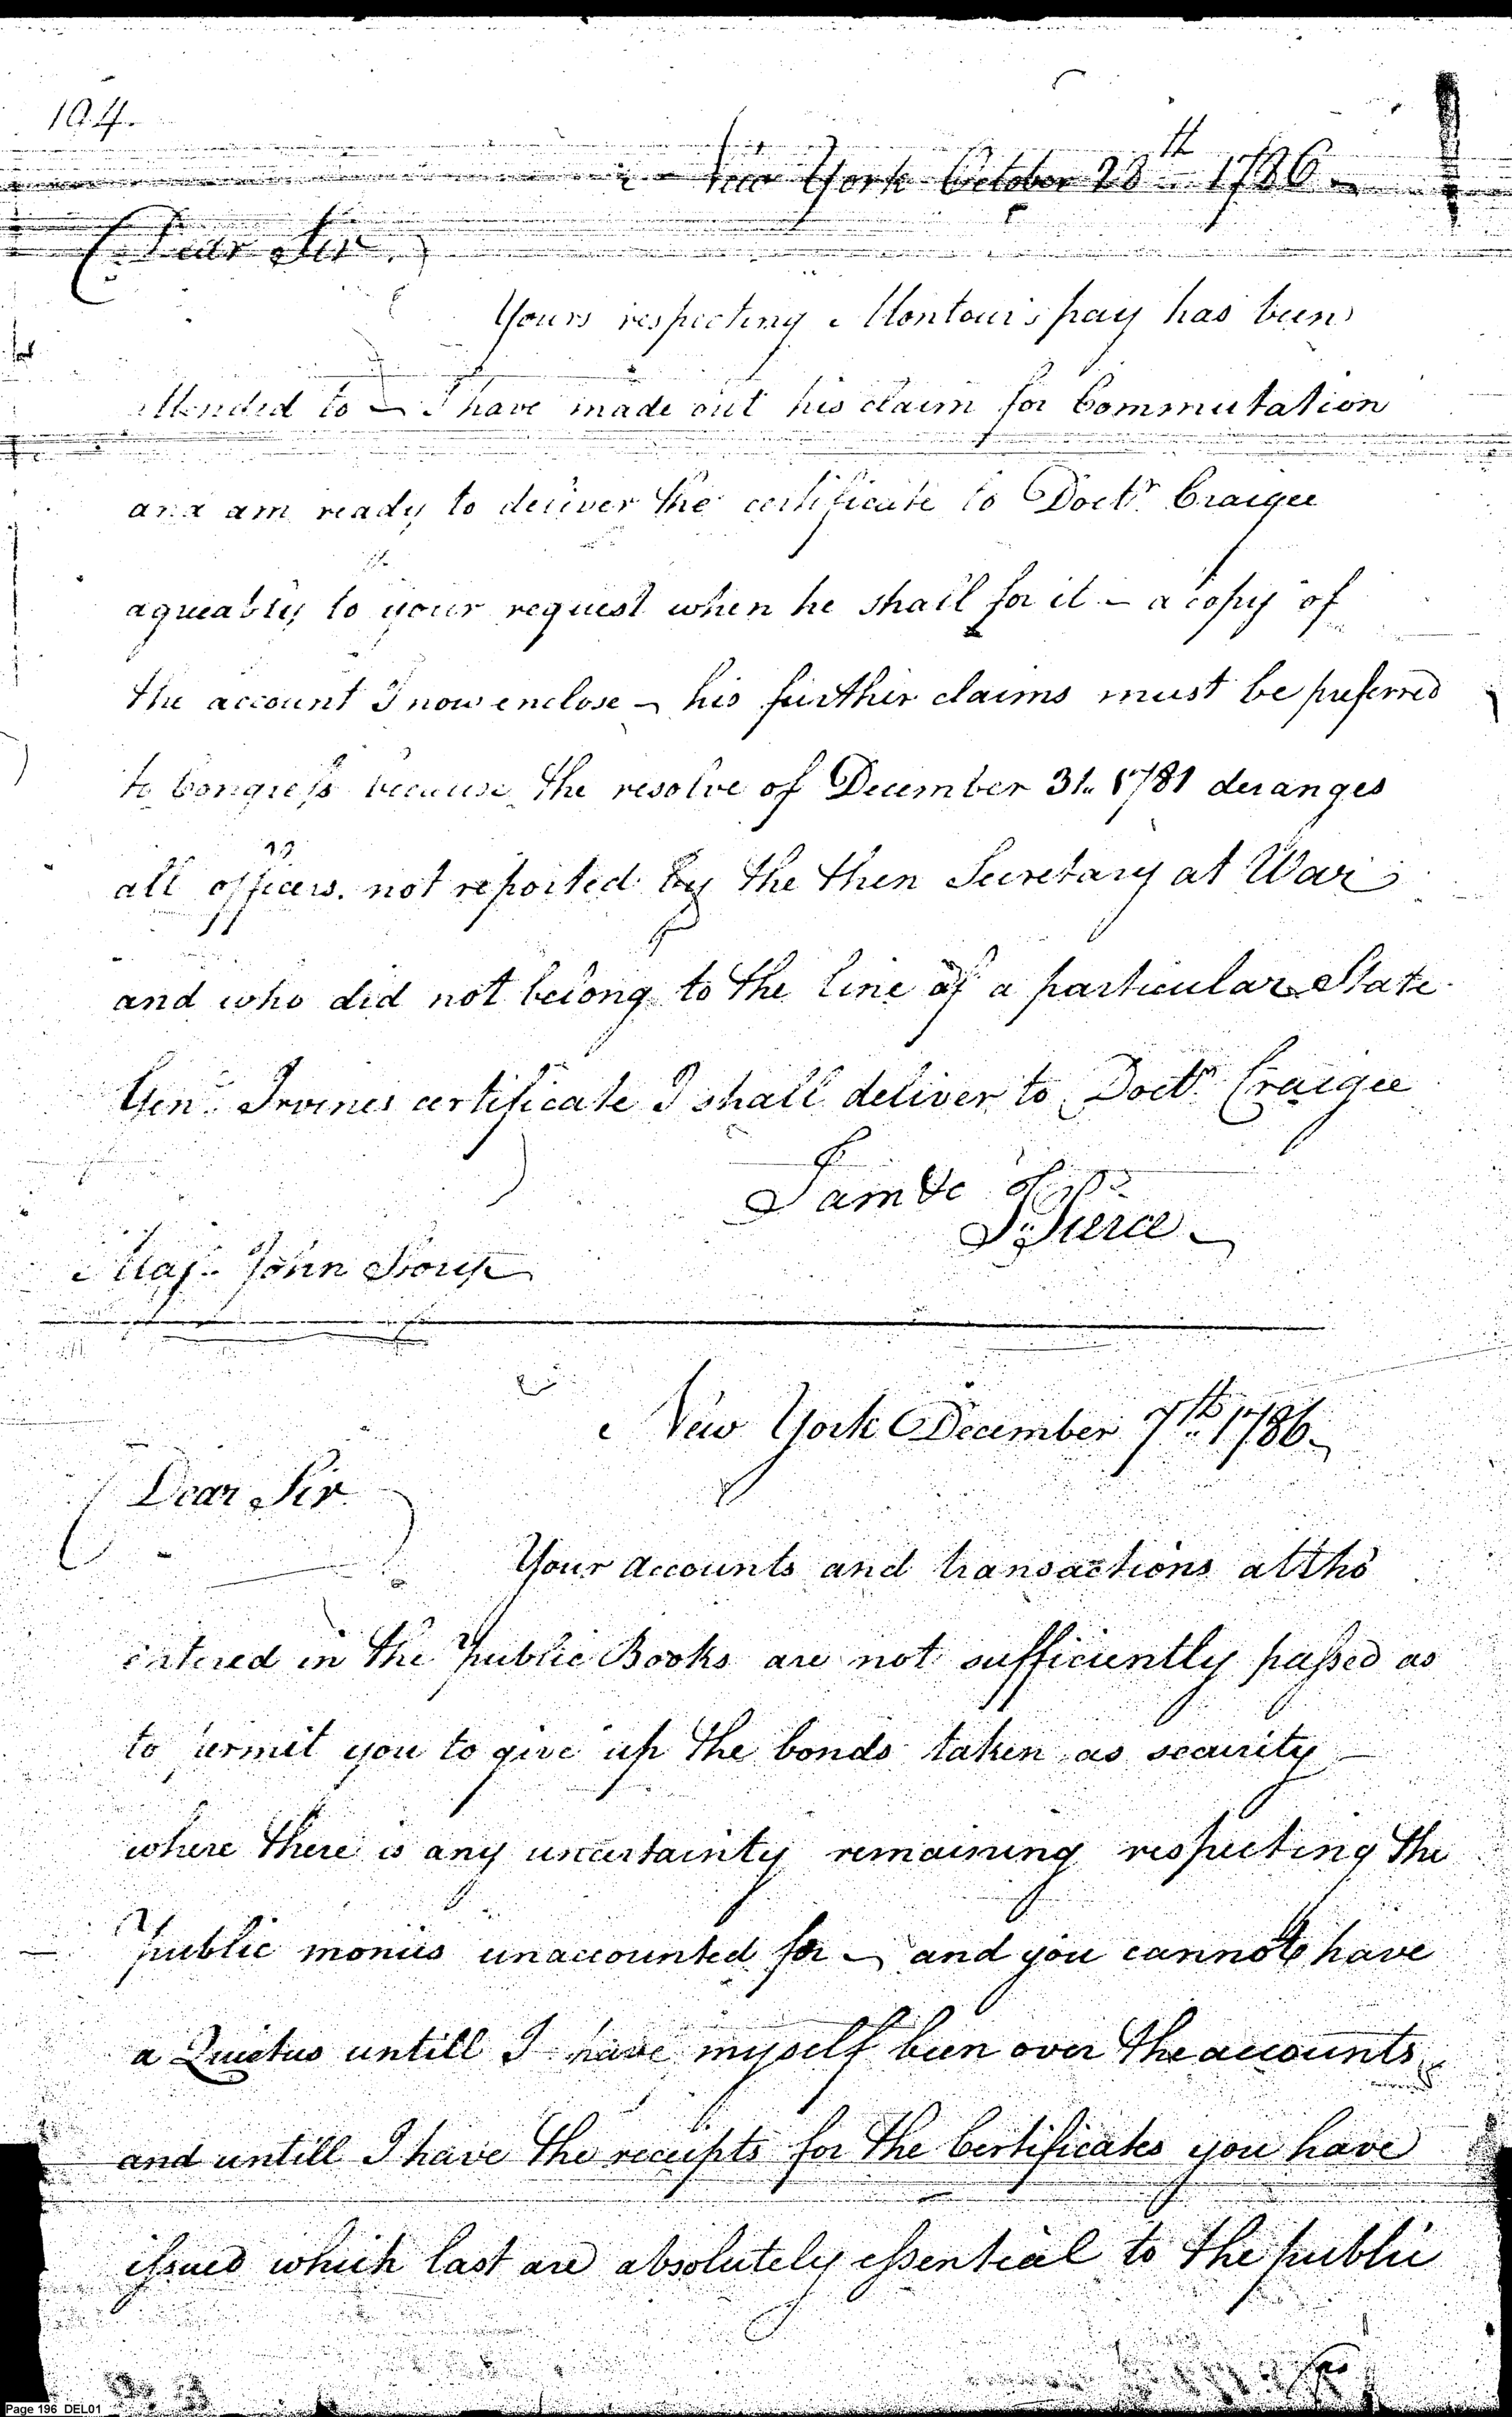 194.
New York October 28th 1786
Dear Sir
Yours respecting Montour's pay has been
attended to — I have made out his claim for Commutation
and am ready to deliver the certificate to Doctr. Craigee
agreeably to your request when he shall for it — a copy of
the account I now enclose — his further claims must be preferred
to Congress because the resolve of December 31. 1781 deranges
all officers not reported by the then Secretary at War
and who did not belong to the line of a particular State.
Genl. Irvines certificate I shall deliver to Doctr. Craigee
I am &c
J. Pierce
Maj. John Story
New York December 7th 1786
Dear Sir
Your accounts and transactions altho
entered in the public Books are not sufficiently passed as
to permit you to give up the bonds taken as security
where there is any uncertainty remaining respecting the
public monies unaccounted for — and you cannot have
a Quietus untill I have myself been over the accounts
and untill I have the receipts for the Certificates you have
issued which last are absolutely essential to the public
Page 196 DEL01